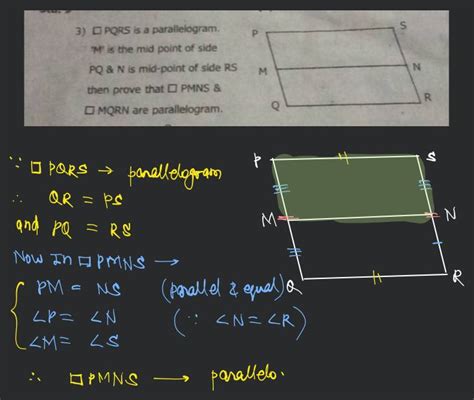 3) □ PQRS is a parallelogram.
'M' is the mid point of side
PQ & N is mid-point of side RS
then prove that □ PMNS &
□ MQRN are parallelogram.
P S
M N
Q R
∵ □ PQRS → parallelogram
∴ QR = PS
and PQ = RS
Now In □ PMNS →
PM = NS (parallel & equal)
∠P = ∠N (∵ ∠N = ∠R)
∠M = ∠S
∴ □ PMNS → parallelo.
P S
M N
Q R